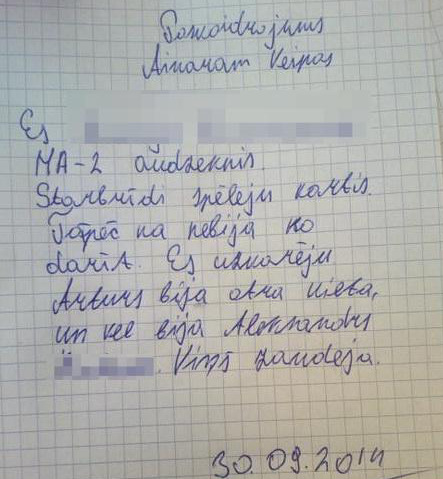 Paskaidrojums
Ainaram Veipas
Es
MA-2 audzeknis.
Starbrīdi spēlēju kartis.
Tāpēc ka nebija ko
darīt. Es uzvarēju
Arturs bija otra vieta,
un vēl bija Aleksandrs
Viņš zaudēja.
30.09.2014